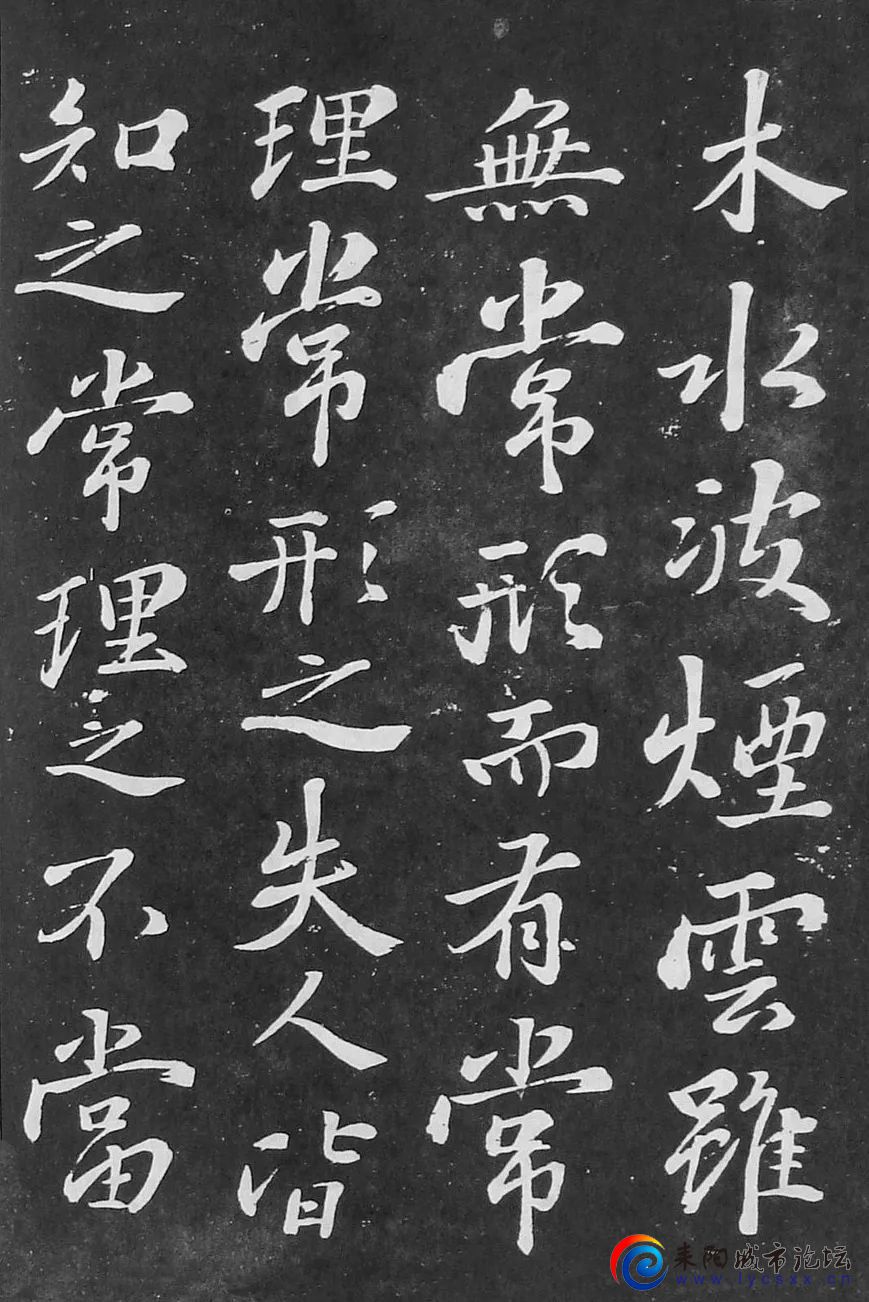 木水波煙雲雖
無常形而有常
理常形之失人皆
知之常理之不當
耒阳城市论坛
www.lycsxx.cn